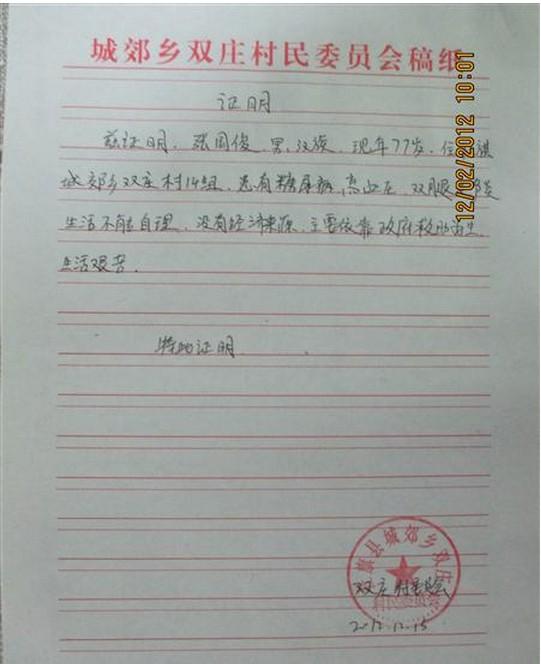 城郊乡双庄村民委员会稿纸
证明
兹证明，张国俊，男，汉族，现年77岁，住
城郊乡双庄村14组，患有糖尿病，高血压，双腿
生活不能自理，没有经济来源，主要依靠政府
生活艰苦.
特此证明
旗县城郊乡双庄
村民委员会
双庄村委会
2012.12.15
12/02/2012 10:01